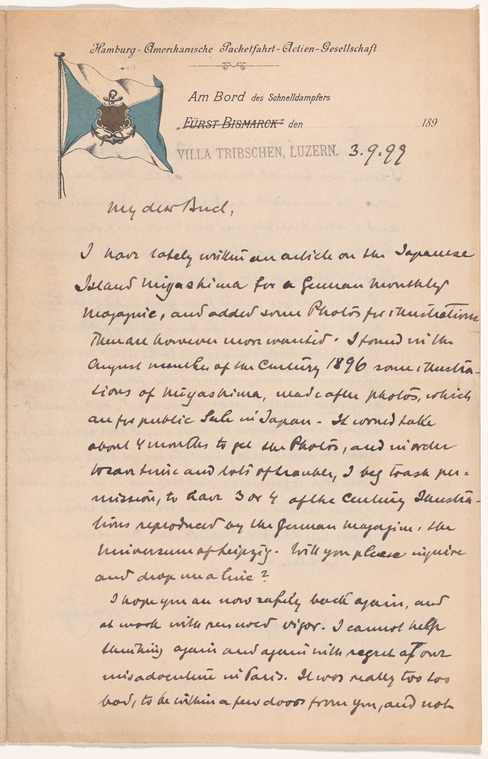 Hamburg-Amerikanische Packetfahrt-Actien-Gesellschaft
Am Bord des Schnelldampfers
„FÜRST BISMARCK" den 189
VILLA TRIBSCHEN, LUZERN. 3.9.99
My dear Buel,
I have lately written an article on the Japanese
Island Miyashima for a German monthly
Magazine, and added some Photos for illustrations
There are however more wanted. I found in the
August number of the Century 1896 some illustra-
tions of Miyashima, made after photos, which
are for public Sale in Japan - It would take
about 4 months to get the Photos, and in order
to save time and lots of trouble, I beg to ask per-
mission, to have 3 or 4 of the Century Illustra-
tions reproduced by the German Magazine, the
Universum of Leipzig. Will you please inquire
and drop me a line?
I hope you are now safely back again, and
at work with renewed vigor. I cannot help
thinking again and again with regret of our
misadventure in Paris. It was really too too
bad, to be within a few doors from you, and not